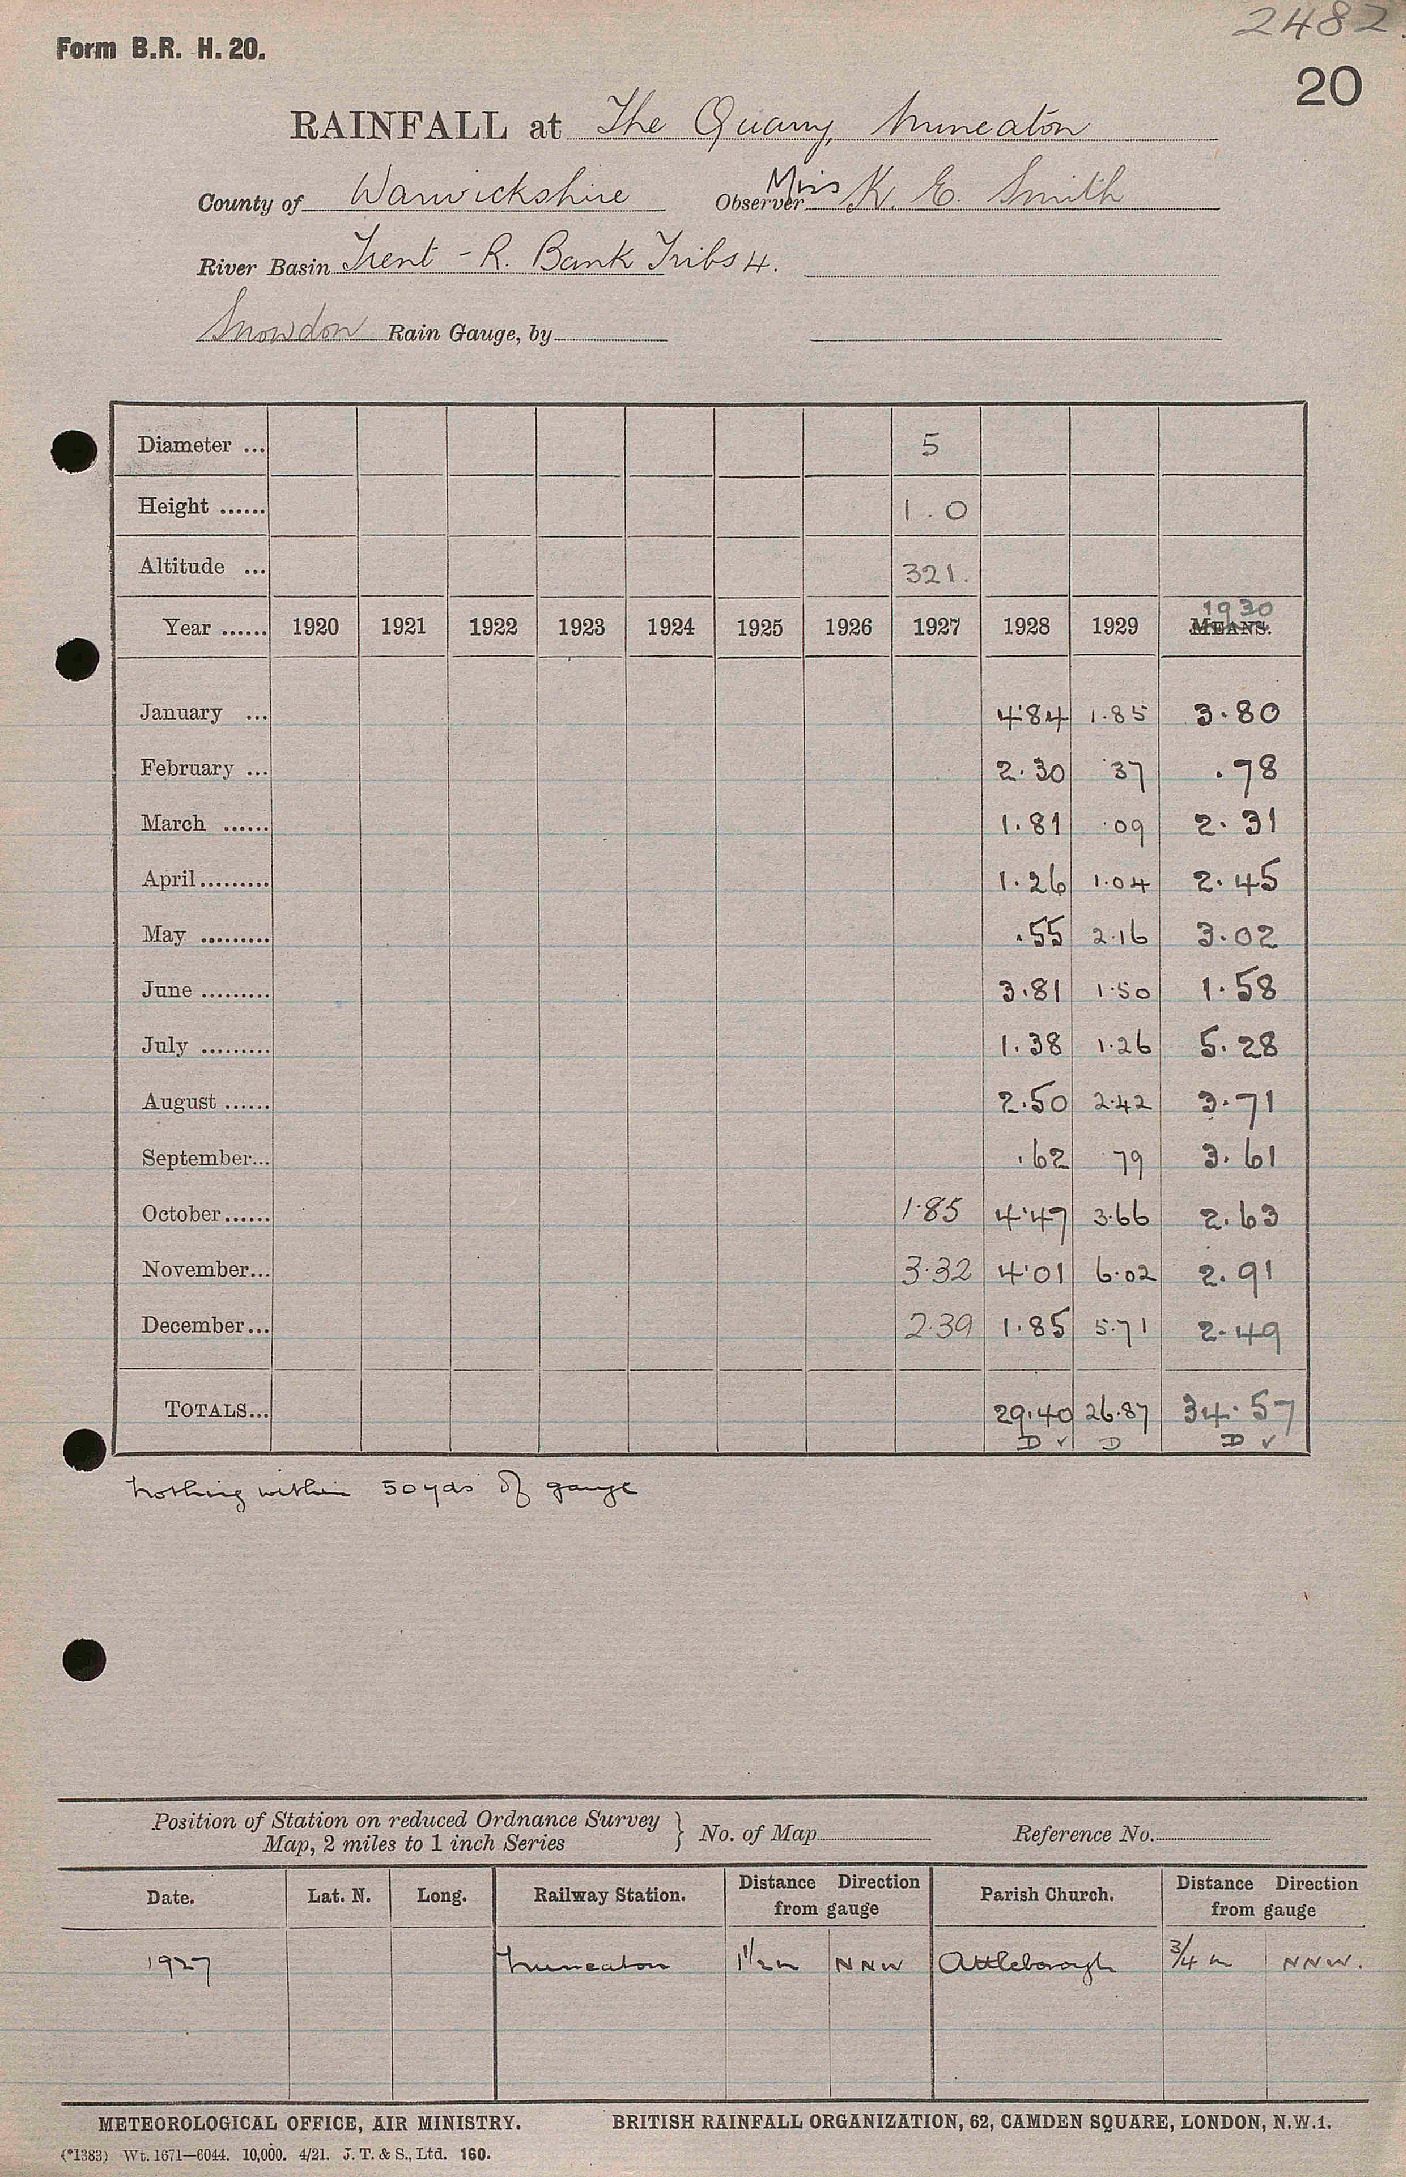 2482.
Form B.R. H. 20.
20
RAINFALL at The Quarry, Nuneaton
County of Warwickshire Observer Miss K. E. Smith
River Basin Trent - R. Bank Tribs 4.
Snowdon Rain Gauge, by
Diameter ... 5
Height ...... 1.0
Altitude ... 321.
1930
Year ...... 1920 1921 1922 1923 1924 1925 1926 1927 1928 1929 MEANS.
January ... 4.84 1.85 3.80
February ... 2.30 .37 .78
March ...... 1.81 .09 2.31
April ......... 1.26 1.04 2.45
May ......... .55 2.16 3.02
June ......... 3.81 1.50 1.58
July ......... 1.38 1.26 5.28
August ...... 2.50 2.42 3.71
September... .62 79 3.61
October...... 1.85 4.47 3.66 2.63
November... 3.32 4.01 6.02 2.91
December... 2.39 1.85 5.71 2.49
TOTALS... 29.40 26.87 34.57
D ✓ D D ✓
Nothing within 50 yds of gauge
Position of Station on reduced Ordnance Survey
Map, 2 miles to 1 inch Series } No. of Map Reference No.
Date. Lat. N. Long. Railway Station. Distance Direction from gauge Parish Church. Distance Direction from gauge
1927 Nuneaton 1 1/2 m NNW Attleborough 3/4 m NNW.
METEOROLOGICAL OFFICE, AIR MINISTRY. BRITISH RAINFALL ORGANIZATION, 62, CAMDEN SQUARE, LONDON, N.W.1.
(*1383) Wt. 1671—6044. 10,000. 4/21. J. T. & S., Ltd. 160.